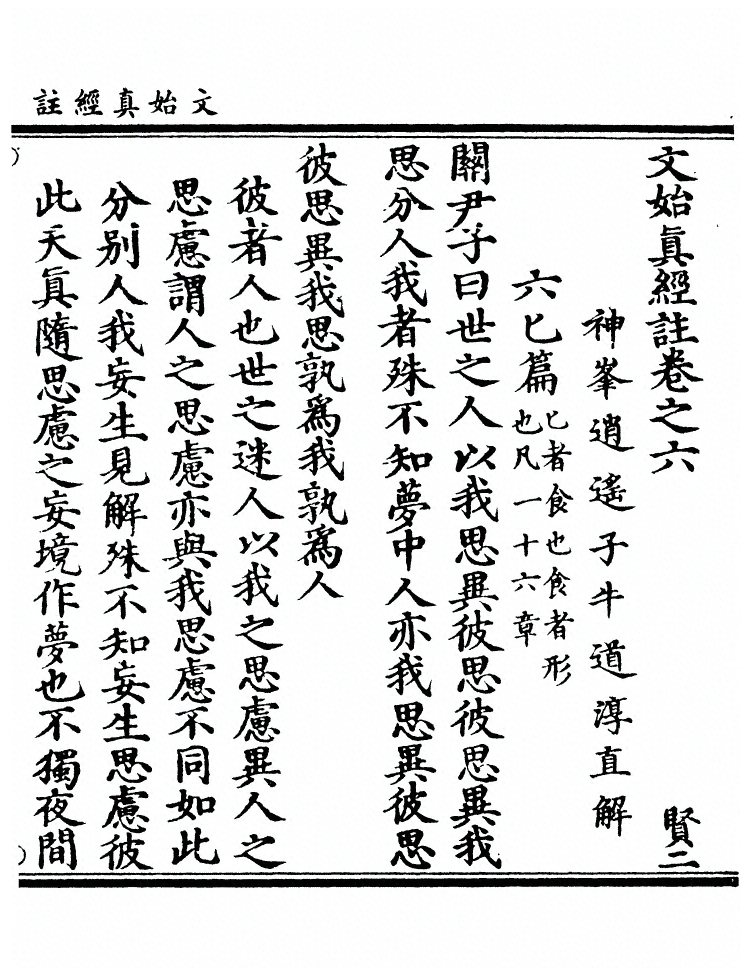 文始真經註
文始眞經註卷之六
賢二
神峯逍遙子牛道淳直解
六匕篇
匕者食也食者形
也凡一十六章
關尹子曰世之人以我思異彼思彼思異我
思分人我者殊不知夢中人亦我思異彼思
彼思異我思孰爲我孰爲人
彼者人也世之迷人以我之思慮異人之
思慮謂人之思慮亦與我思慮不同如此
分别人我妄生見解殊不知妄生思慮彼
此天眞隨思慮之妄境作夢也不獨夜間